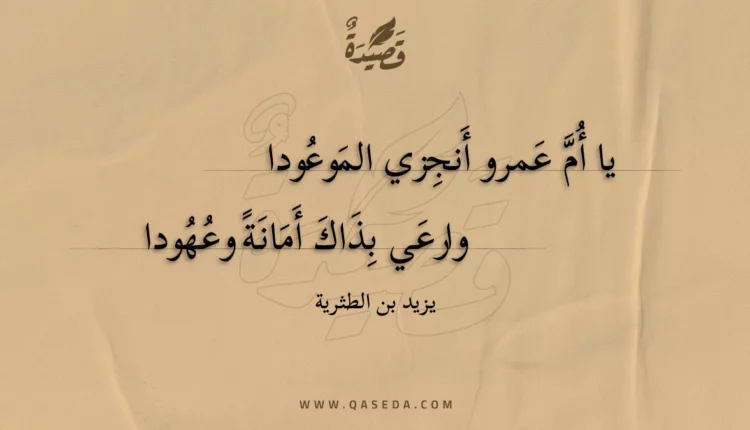 قَصِيدَةٌ
يا أُمَّ عَمرو أَنجِزي المَوعُودا
وارعَي بِذَاكَ أَمَانَةً وعُهُودا
يزيد بن الطثرية
WWW.QASEDA.COM